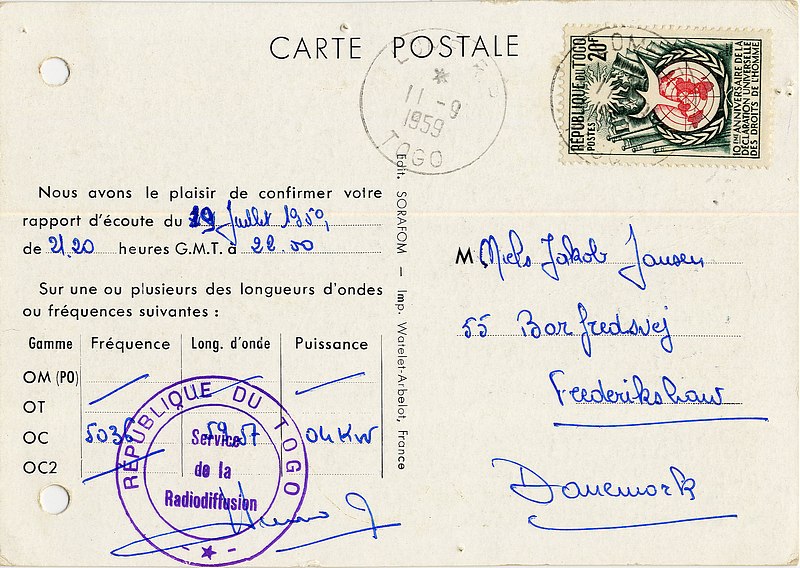 CARTE POSTALE
11-9
1959
TOGO
RÉPUBLIQUE DU TOGO
POSTES
20F
10ME ANNIVERSAIRE DE LA
DÉCLARATION UNIVERSELLE
DES DROITS DE L'HOMME
Nous avons le plaisir de confirmer votre
rapport d'écoute du 19 Juillet 1959,
de 21.20 heures G.M.T. à 22.00
Sur une ou plusieurs des longueurs d'ondes
ou fréquences suivantes :
Gamme Fréquence Long. d'onde Puissance
OM (PO)
OT
OC 5036 59.57 04 KW
OC2
RÉPUBLIQUE DU TOGO
Service
de la
Radiodiffusion
Edit. SORAFOM — Imp. Watelet-Arbelot, France
M Niels Jakob Jansen
55 Borfredsvej
Frederikshaw
Danemark